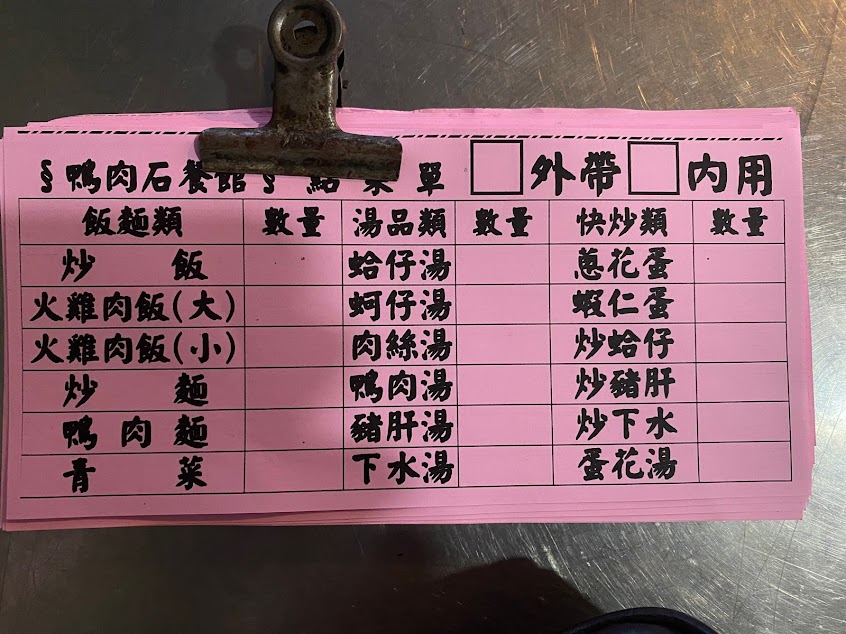 §鴨肉石餐館§ 點菜單 □外帶□內用
飯麵類 數量 湯品類 數量 快炒類 數量
炒飯 蛤仔湯 蔥花蛋
火雞肉飯(大) 蚵仔湯 蝦仁蛋
火雞肉飯(小) 肉絲湯 炒蛤仔
炒麵 鴨肉湯 炒豬肝
鴨肉麵 豬肝湯 炒下水
青菜 下水湯 蛋花湯